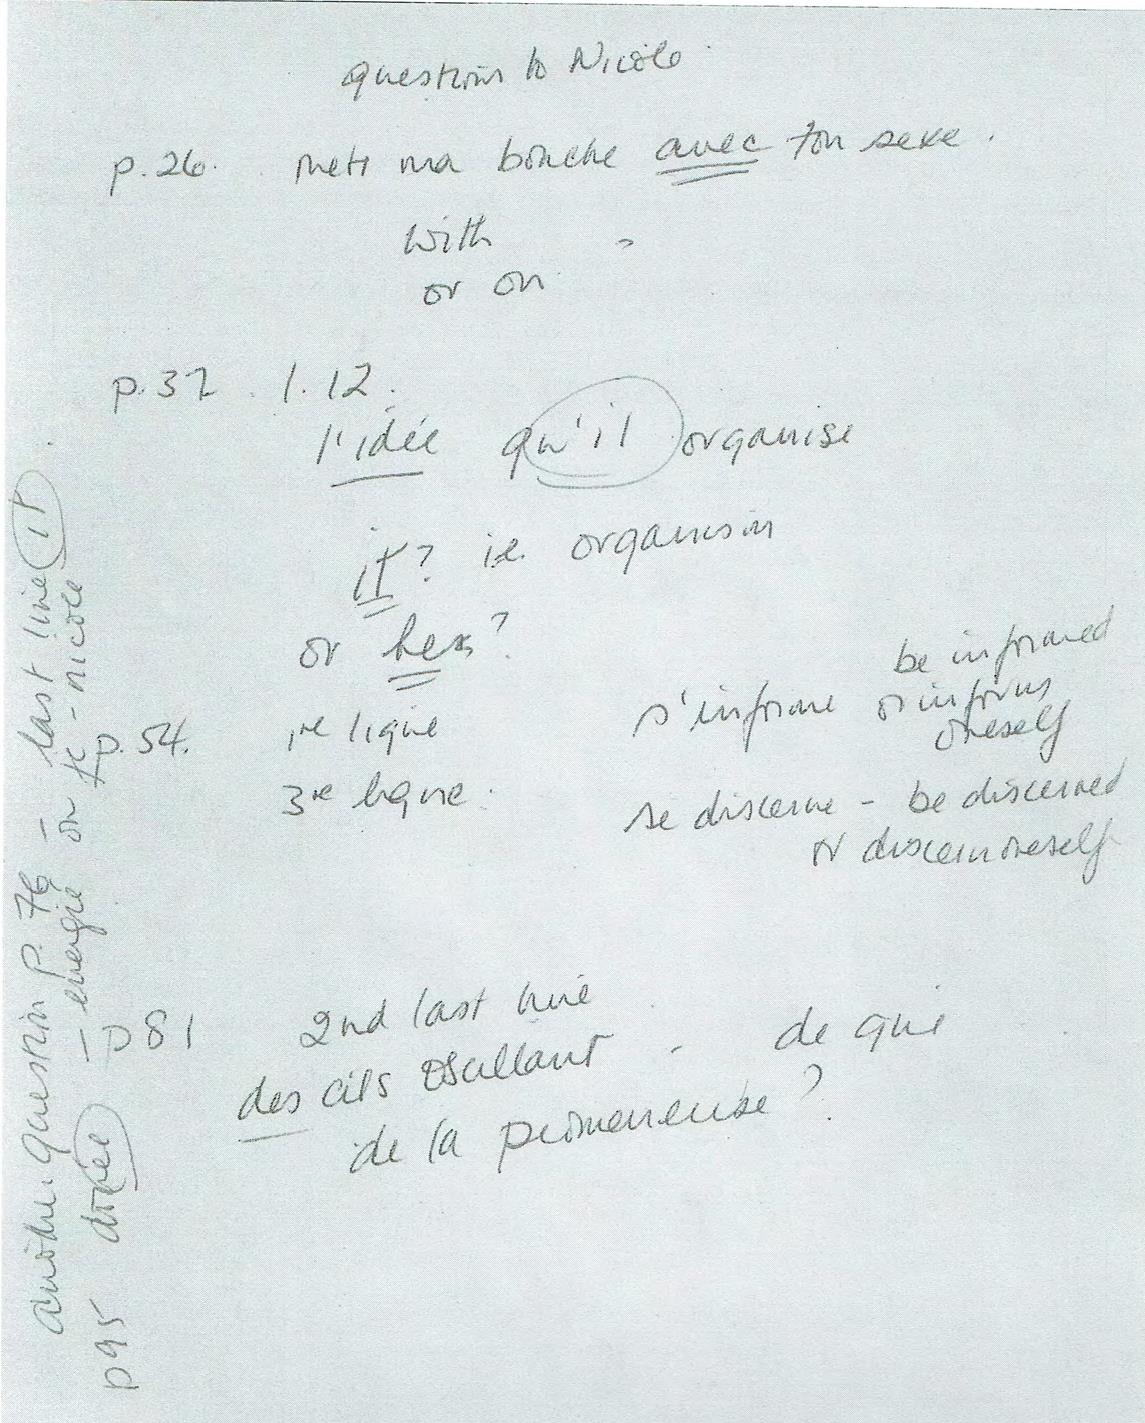 question to Nicole
p.26. mets ma bouche avec ton sexe.
with "
or on
p.37. l.12.
l'idée qu'il organise
it? i.e. organism
or hers?
p.54. 1re ligne s'informe be informed
or informs
oneself
3re ligne. se discerne - be discerned
or discern oneself
p81 2nd last line
des cils oscillant - de qui
de la promeneuse?
another question p. 76 - last line it
- energie on je - nicole
p95